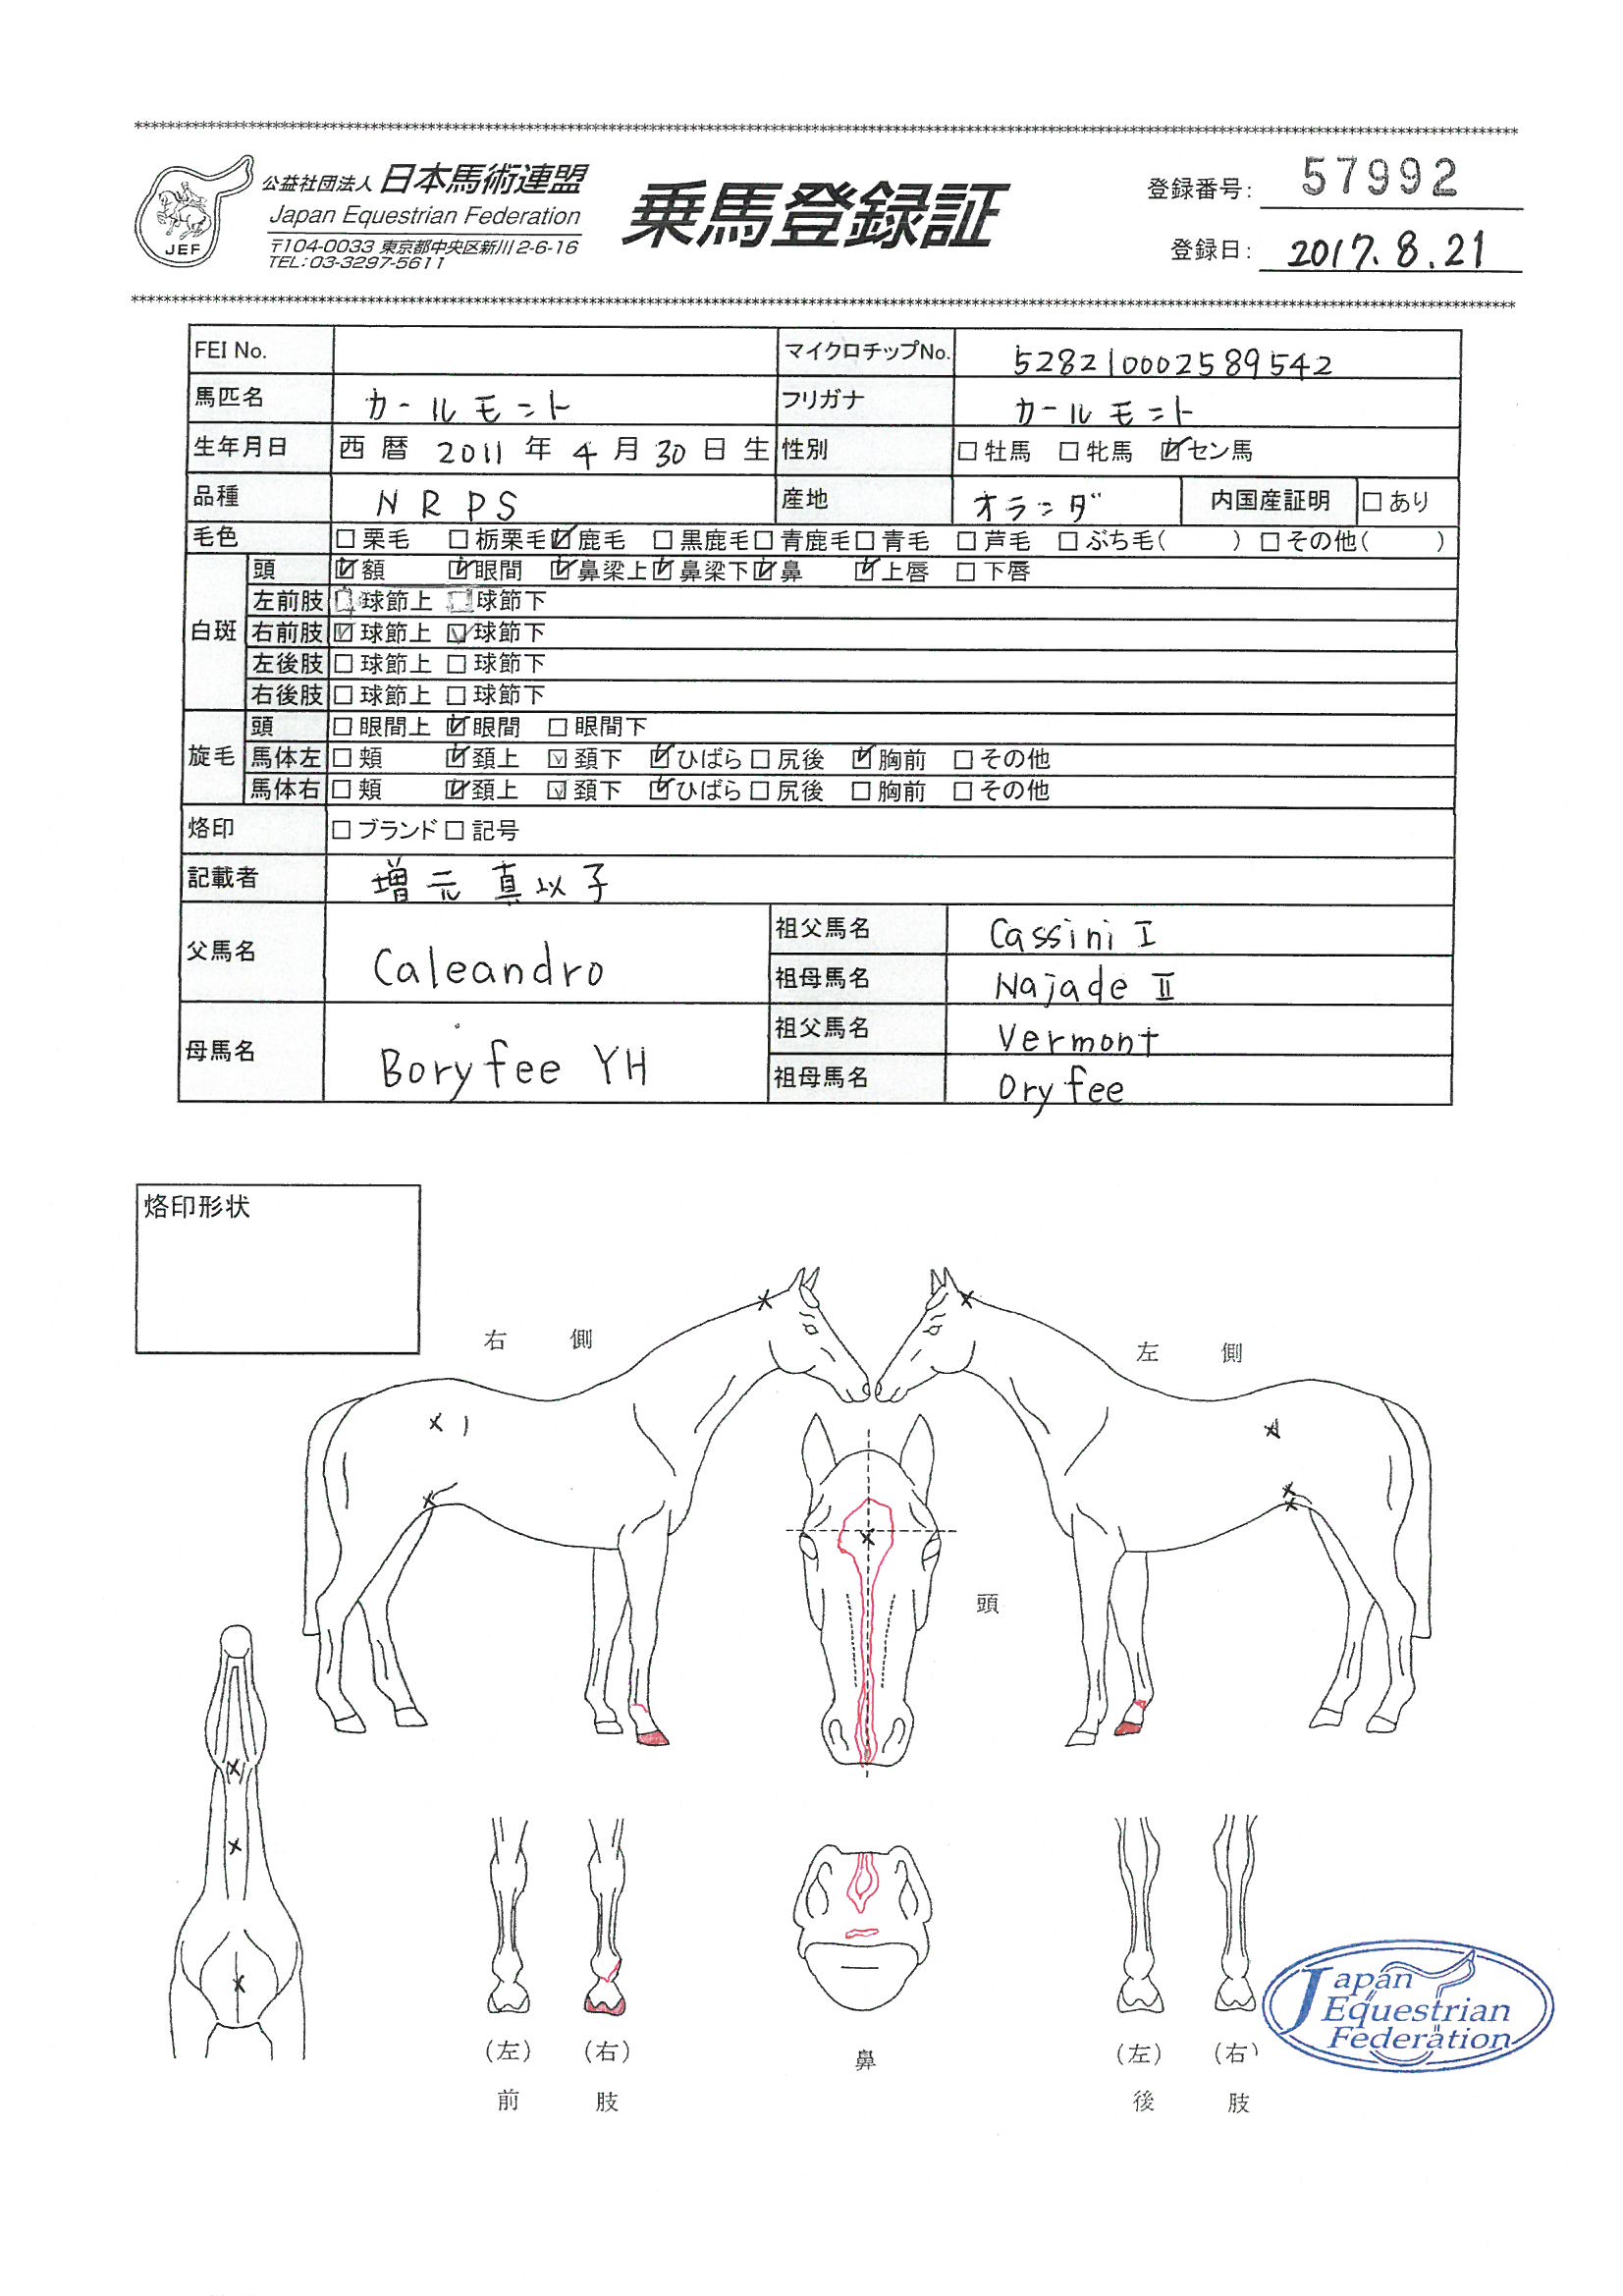 ****************************************************************
公益社団法人 日本馬術連盟
Japan Equestrian Federation
〒104-0033 東京都中央区新川2-6-16
TEL:03-3297-5611
JEF
乗馬登録証
登録番号: 57992
登録日: 2017.8.21
****************************************************************
FEI No. マイクロチップNo. 528210002589542
馬匹名 カールモント フリガナ カールモント
生年月日 西暦 2011 年 4 月 30 日 生 性別 □ 牡馬 □ 牝馬 ☑ セン馬
品種 NRPS 産地 オランダ 内国産証明 □ あり
毛色 □ 栗毛 □ 栃栗毛 ☑ 鹿毛 □ 黒鹿毛 □ 青鹿毛 □ 青毛 □ 芦毛 □ ぶち毛( ) □ その他( )
白斑 頭 ☑ 額 ☑ 眼間 ☑ 鼻梁上 ☑ 鼻梁下 ☑ 鼻 ☑ 上唇 □ 下唇
左前肢 □ 球節上 □ 球節下
右前肢 ☑ 球節上 ☑ 球節下
左後肢 □ 球節上 □ 球節下
右後肢 □ 球節上 □ 球節下
旋毛 頭 □ 眼間上 ☑ 眼間 □ 眼間下
馬体左 □ 頬 ☑ 頚上 ☑ 頚下 ☑ ひばら □ 尻後 ☑ 胸前 □ その他
馬体右 □ 頬 ☑ 頚上 ☑ 頚下 ☑ ひばら □ 尻後 □ 胸前 □ その他
烙印 □ ブランド □ 記号
記載者 増元 真以子
父馬名 Caleandro 祖父馬名 Cassini I
祖母馬名 Najade II
母馬名 Boryfee YH 祖父馬名 Vermont
祖母馬名 Oryfee
烙印形状
右 側
左 側
頭
(左) (右)
前 肢
鼻
(左) (右)
後 肢
Japan
Equestrian
Federation